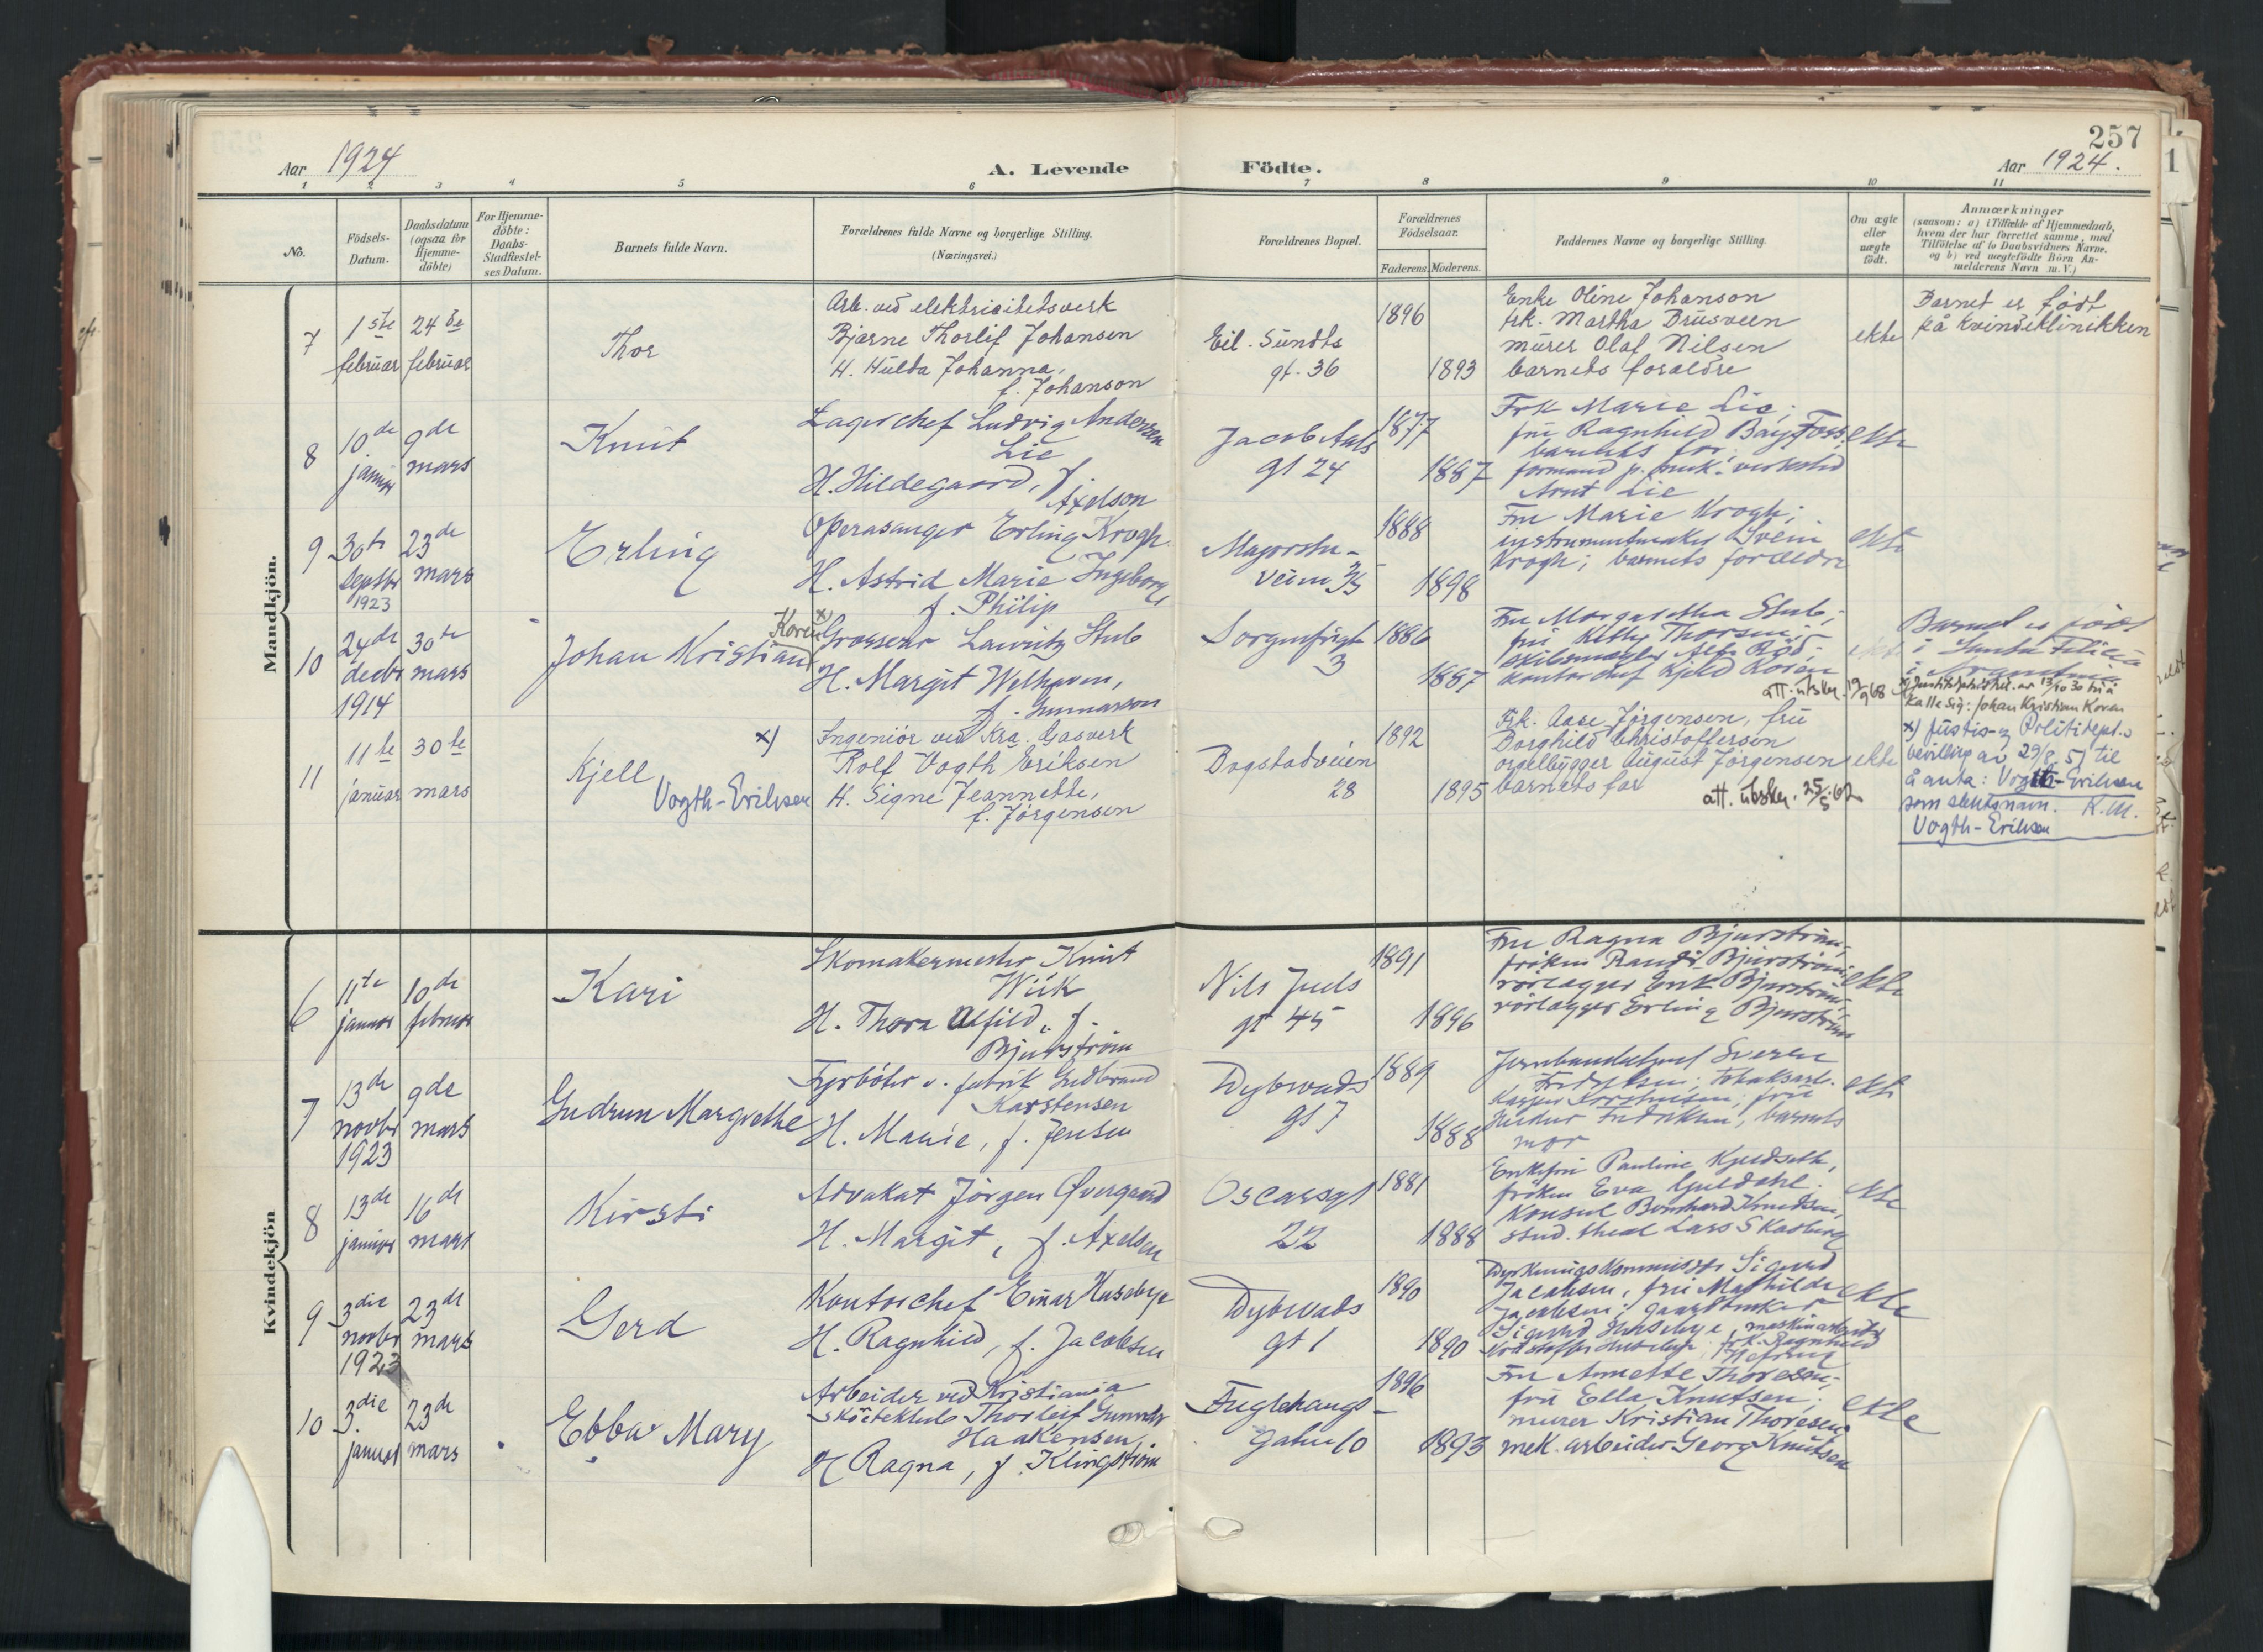 257
Aar 1924
A. Levende Födte.
Aar 1924.
1 2 3 4 5 6 7 8 9 10 11
No.
Födsels-
Datum.
Daabsdatum
(ogsaa for
Hjemme-
döbte)
For Hjemme-
döbte:
Daabs-
Stadfæstel-
ses Datum.
Barnets fulde Navn.
Forældrenes fulde Navne og borgerlige Stilling.
(Næringsvei.)
Forældrenes Bopæl.
Forældrenes
Födselsaar.
Faderens. Moderens.
Faddernes Navne og borgerlige Stilling.
Om ægte
eller
uægte
födt.
Anmærkninger
(saasom: a) i Tilfælde af Hjemmedaab,
hvem der har forrettet samme, med
Tilföielse af to Daabsvidners Navne,
og b) ved uægtefödte Börn An-
melderens Navn m. V.)
Mandkjön.
7
1ste
februar
24de
februar
Thor
Arb. ved elektricitetsverk
Bjarne Thorlif Johansen
H. Hulda Johanna,
f. Johanson
Eil. Sundts
gt. 36
1896
1893
Enke Oline Johanson
frk. Martha Brusveen
murer Olaf Nilsen
barnets foraldre
ekte
Barnet er födt
på kvindeklinikken
8
10de
januar
9de
mars
Knut
Lagerchef Ludvig Andersen
Lie
H. Hildegaard, f.
Axelson
Jacob Aals
gt 24
1877
1887
Frk Marie Lie;
fru Ragnhild Bay Foss
barnets far;
formand p. mek. verksted
Arnt Lie
ekte
9
30te
septbr
1923
23de
mars
Erling
Operasanger Erling Krogh
H. Astrid Marie Ingeborg,
f. Philip
Majorstu-
veien
1888
1898
Fru Marie Krogh;
instrumentmaker Svein
Krogh; barnets forældre
ekte
10
24de
decbr
1914
30te
mars
Johan Kristian
Koren x)
Grosserer Lauritz Stub
H. Margit Welhaven,
f. Gunnarson
Sorgenfrigt
3
1886
1887
Fru Margaretha Stub;
fru Kitty Thorsen;
skibsmægler Alb. Röd;
kontorchef Kjeld Koren
att. utskr. 19/9 68
Barnet er födt
i Santa Felicia
i Argentina
x) Justisdep. av 13/10 30 til å
kalle sig: Johan Kristian Koren
11
11te
januar
30te
mars
Kjell
Vogth-Eriksen
x)
Ingeniör ved Kra. Gasverk
Rolf Vogth Eriksen
H. Signe Jeannette,
f. Jörgensen
Bogstadveien
28
1892
1895
Frk. Aase Jörgensen, fru
Borghild Christoffersen
orgelbygger August Jörgensen
barnets far
att. utskr. 25/5.62
ekte
x) Justis- og Politidept.s
bevilling av 29/8.51 til
å anta: Vogth-Eriksen
som slektsnavn. K.M.
Vogth-Eriksen
Kvindekjön
6
11te
januar
10de
februar
Kari
Skomakermester Knut
Wiik
H. Thora Alfild, f.
Bjurström
Nils Juels
gt 45
1891
1896
Fru Ragna Bjurström,
fröken Randi Bjurström,
rörlægger Erik Bjurström,
rörlægger Erling Bjurström
ekte
7
13de
novbr
1923
9de
mars
Gudrun Margrethe
Fyrböter v. fabrik Gudbrand
Karstensen
H. Marie, f. Jensen
Dybwads
gt 7
1889
1888
Sveren
Fredriksen; tobaksarb.
Kasper Karstensen; fru
Fredriksen, barnets
mor
ekte
8
13de
januar
16de
mars
Kirsti
Advokat Jörgen Övergaard
H. Margit, f. Axelsen
Oscarsgt
22
1881
1888
Enkefru Pauline Kjeldseth,
fröken Eva Guldahl.
Konsul Bernhard Knudsen,
stud. theol Lars Skarberg
ekte
9
3die
novbr
1923
23de
mars
Gerd
Kontorchef Einar Huseby
H. Ragnhild, f. Jacobsen
Dybwads
gt 1
1890
1890
Sigurd
Jacobsen, fru Mathilde
Jacobsen; gaardbruker
Sigurd Huseby, maskinarbeider
Kristoffer Huseby, frk. Ragnhild
ekte
10
3die
januar
23de
mars
Ebba Mary
Arbeider ved Kristiania
Sköiteklub Thorleif Gunnar
Haakensen
H Ragna, f. Klingström
Fuglehaugs-
gaten 10
1896
1893
Fru Annette Thoresen,
fru Ella Knutsen;
murer Kristian Thoresen
mek. arbeider Georg Knutsen
ekte